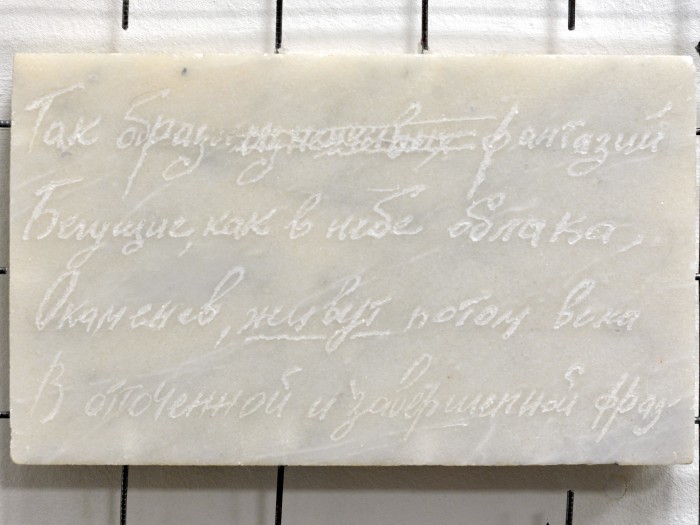 Так образы изменчивых фантазий
Бегущие, как в небе облака,
Окаменев, живут потом века
В отточенной и завершенной фраз